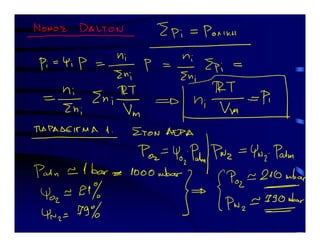 ΝΟΜΟΣ DALTON Σpᵢ = Pολικη
pᵢ = ψᵢ P = nᵢ/Σnᵢ P = nᵢ/Σnᵢ Σpᵢ =
= nᵢ/Σnᵢ Σnᵢ RT/Vm ⇒ nᵢ RT/Vm = Pᵢ
ΠΑΡΑΔΕΙΓΜΑ 1. ΣΤΟΝ ΑΕΡΑ
P_O₂ = ψ_O₂ · Patm | P_N₂ = ψ_N₂ · Patm
Patm ≃ 1 bar = 1000 mbar
ψ_O₂ ≃ 21%
ψ_N₂ = 79%
⇒ { P_O₂ ≃ 210 mbar
P_N₂ ≃ 790 mbar